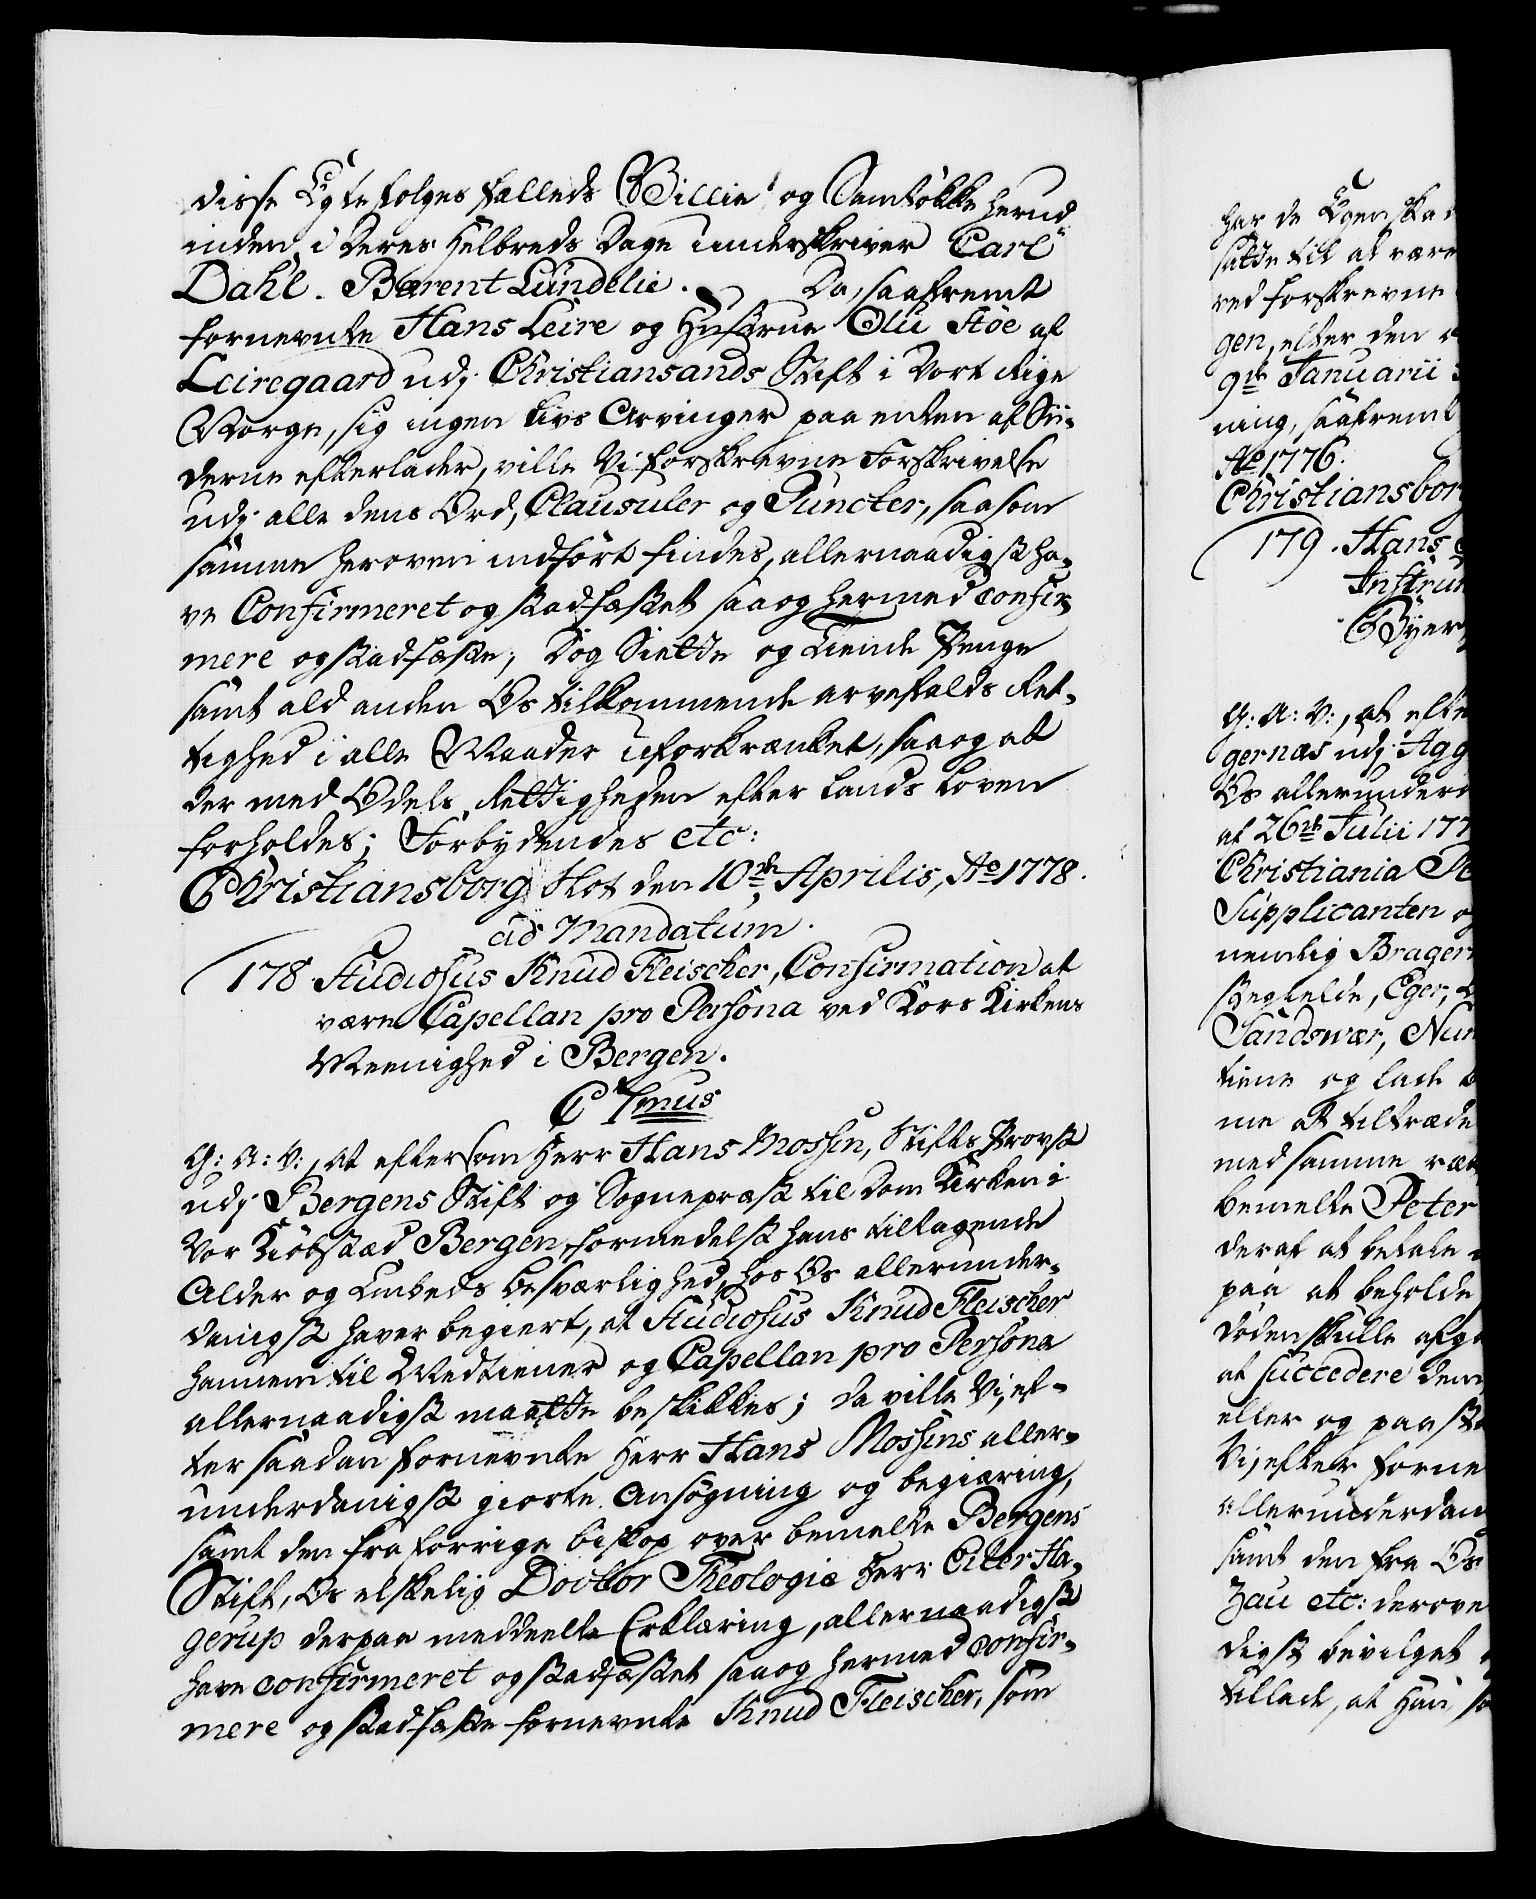 disse Egtefolges fælleds Villie og Samtökke herud
inden i deres Helbreds Dage underskriver Carl
Dahl. Bærent Lundelie. Da, saafremt
fornevnte Hans Leire og Hustrue Olu Stöe af
Leiregaard udj Christiansands Stift i Vort Rige
Norge, sig ingen Livs Arvinger paa enten af Sii-
derne efterlader, ville Vi forskrevne Forskrivelse
udj alle dens Ord, Clausuler og Puncter, saasom
samme heroven indfört findes, allernaadigst ha-
ve Confirmeret og stadfæstet saa og hermed confir-
mere og stadfæste; Dog Siette og Tiende Penge
samt ald anden Os tilkommende arvefalds Ret-
tighed i alle Maader uforkrænket, saa og at
der med Odels Rettigheden efter Lands Loven
forholdes; Forbydendes etc:
Christiansborg Slot den 10de Aprilis, Ao 1778.
ad Mandatum.
178 Studiosus Knud Fleischer, Confirmation at
være Capellan pro Persona ved Kors Kirkens
Meenighed i Bergen.
C 7mus
G: A: V:, at eftersom Herr Hans Mossin, Stifts Provst
udj Bergens Stift og Sognepræst til Dom Kirken i
Vor Kiöbstæd Bergen, formedelst hans tiltagende
Alder og Embeds besværlighed, hos Os allerunder-
danigst haver begiert, at Studiosus Knud Fleischer
hannem til Medtiener og Capellan pro Persona
allernaadigst maatte beskikkes; da ville Vi, ef-
ter saadan fornevnte Herr Hans Mossins aller-
underdanigst giorte Ansögning og begiæring,
samt den fra forrige biskop over bemelte Bergens
Stift, Os elskelig Doctor Theologiæ Herr Eiler Ha-
gerup derpaa meddeelte Erklæring, allernaadigst
have confirmeret og stadfæstet saa og hermed confir-
mere og stadfæste fornevnte Knud Fleischer, som
har de
satte til at være
ved forskrevne
gen, efter den
9de Januarii
ning, saafremt
Ao 1776.
Christiansborg
179. Hans
Instru
Byer
G: A: V:, at efte
gernæs udj Agg
Os allerunder
af 26de Julii 177
Christiania
Supplicanten
nemlig Brager
Eger,
Sandswær, Num
tiene og lade
me at tiltræde
med samme
bemelte Peter
deraf at betale
paa at beholde
döden skulle afg
at succedere dem
eller og paa
Vi, efter forne
allerunderdan
samt den fra Os
Zau etc: derove
digst bevilget
tillade, at Han